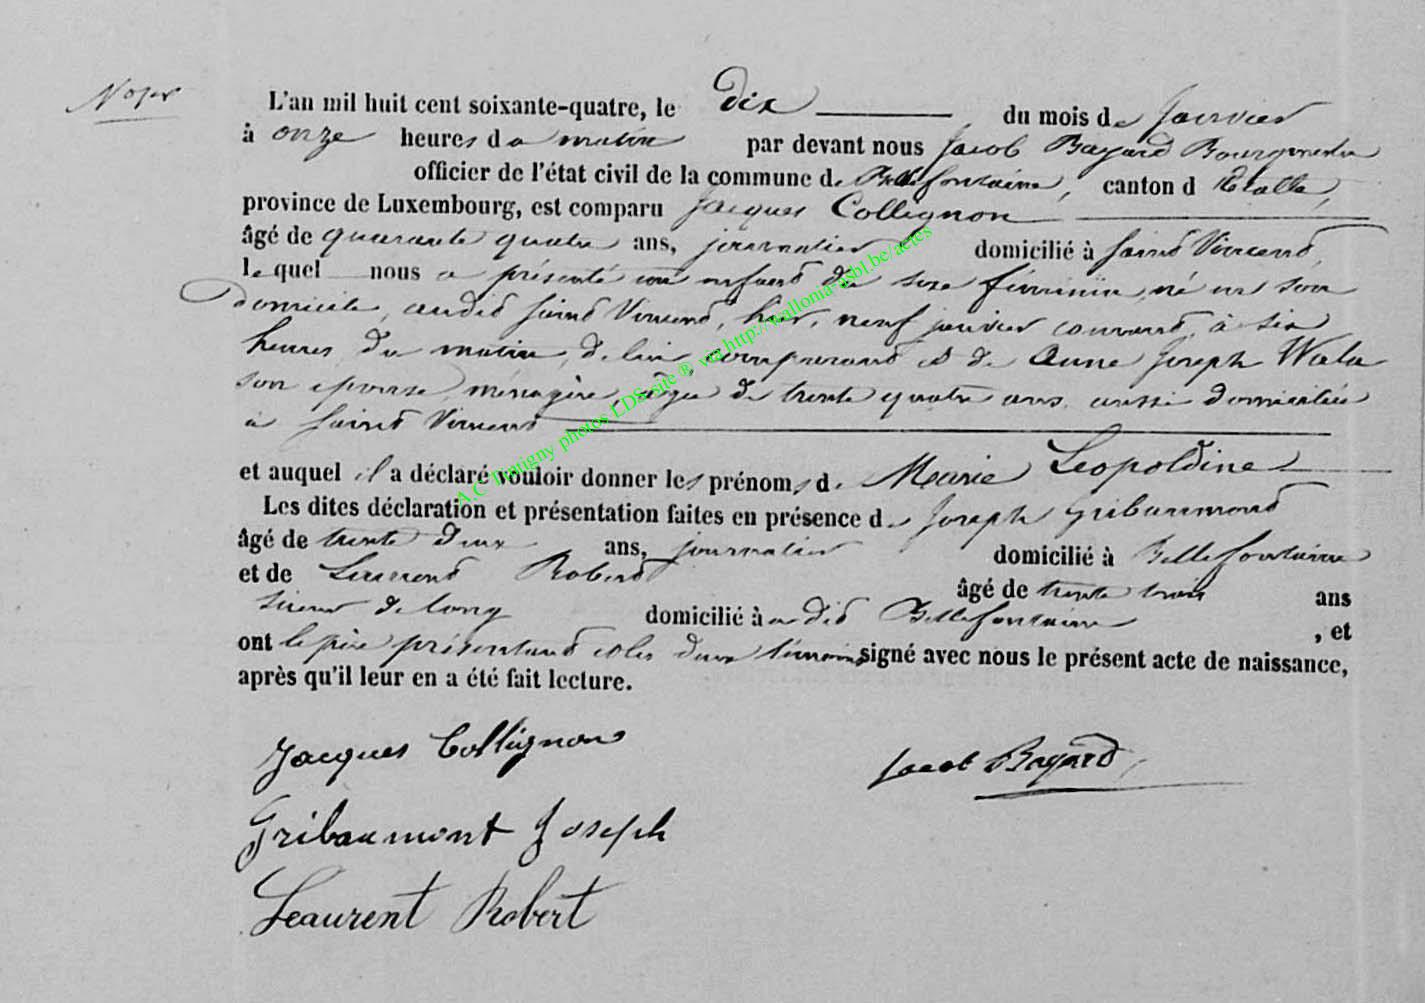 L'an mil huit cent soixante-quatre, le dix du mois de janvier
à onze heures du matin par devant nous Jacob Bayard Bourgmestre
officier de l'état civil de la commune de Bellefontaine, canton d Etalle,
province de Luxembourg, est comparu Jacques Collignon
âgé de quarante quatre ans, journalier domicilié à Saint Vincent,
lequel nous a présenté un enfant du sexe féminin, né en son
domicile, audit Saint Vincent, hier, neuf janvier courant, à six
heures du matin, de lui comparant et de Anne Joseph
son épouse, ménagère, âgée de trente quatre ans, aussi domiciliée
à Saint Vincent
et auquel il a déclaré vouloir donner les prénoms de Marie Leopoldine
Les dites déclaration et présentation faites en présence de Joseph Gribaumont
âgé de trente deux ans, journalier domicilié à Bellefontaine
et de Leaurent Robert âgé de trente trois ans
scieur de long domicilié à udit Bellefontaine , et
ont le père présentant et les deux témoins signé avec nous le présent acte de naissance,
après qu'il leur en a été fait lecture.
Jacques Collignon
Jacob Bayard
Gribaumont Joseph
Leaurent Robert
A.C Tintigny photos LDS-site ® via http://wallonia-asbl.be/actes